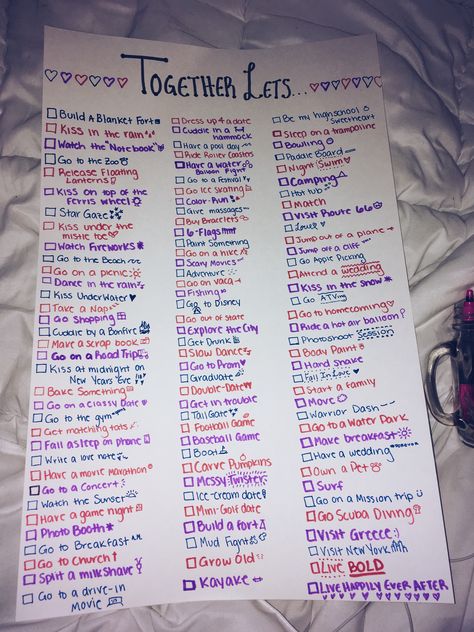 TOGETHER LETS...
Build A Blanket Fort
Kiss in the rain
Watch the "Notebook"
Go to the Zoo
Release Floating
Lanterns
Kiss on top of the
Ferris wheel
Star Gaze
Kiss under the
mistle toe
Watch Fireworks
Go to the Beach
Go on a picnic
Dance in the rain
Kiss Underwater
Take a Nap
Go Shopping
Cuddle by a Bonfire
Make a scrap book
Go on a Road Trip
Kiss at midnight on
New Years Eve
Bake Something
Go on a Classy Date
Go to the gym
Get matching tats
Fall asleep on phone
Write a love note
Have a movie marathon
Go to a Concert
Watch the Sunset
Have a game night
Photo Booth
Go to Breakfast
Go to Church
Split a milkshake
Go to a drive-in
movie
Dress up 4 a date
Cuddle in a hammock
Have a pool day
Ride Roller Coasters
Have a water
Balloon Fight
Go to a Festival
Go Ice Skating
Color Run
Give massages
Buy Bracelets
6-Flags
Paint Something
Go on a hike
Scary Movies
Adventure
Go on vaca
Fishing
Go to Disney
Go out of State
Explore the City
Get Drunk
Slow Dance
Go to Prom
Graduate
Double-Date
Get in trouble
TailGate
Football Game
Baseball Game
Boat
Carve Pumpkins
Messy Twister
Ice-cream date
Mini-Golf date
Build a fort
Mud Fight
Grow Old
Kayake
Be my highschool
sweetheart
Sleep on a trampoline
Bowling
Paddle Board
Night Swim
Camping
Hot tub
Match
Visit Route 66
Love
Jump out of a plane
Jump off a cliff
Go Apple Picking
Attend a wedding
Kiss in the Snow
Go ATVing
Go to homecoming
Ride a hot air balloon
Photoshoot Session
Body Paint
Hand shake
Fall In Love
Start a family
Move
Warrior Dash
Go to a Water Park
Make breakfast
Have a wedding
Own a Pet
Surf
Go on a Mission trip
Go Scuba Diving
Visit Greece :)
Visit New York
Live BOLD
LIVE HAPPILY EVER AFTER